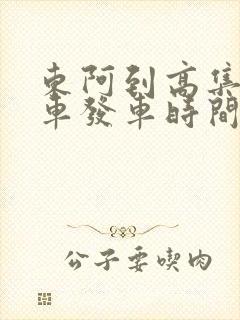 東阿到高集
車發車時間
公子要喫肉